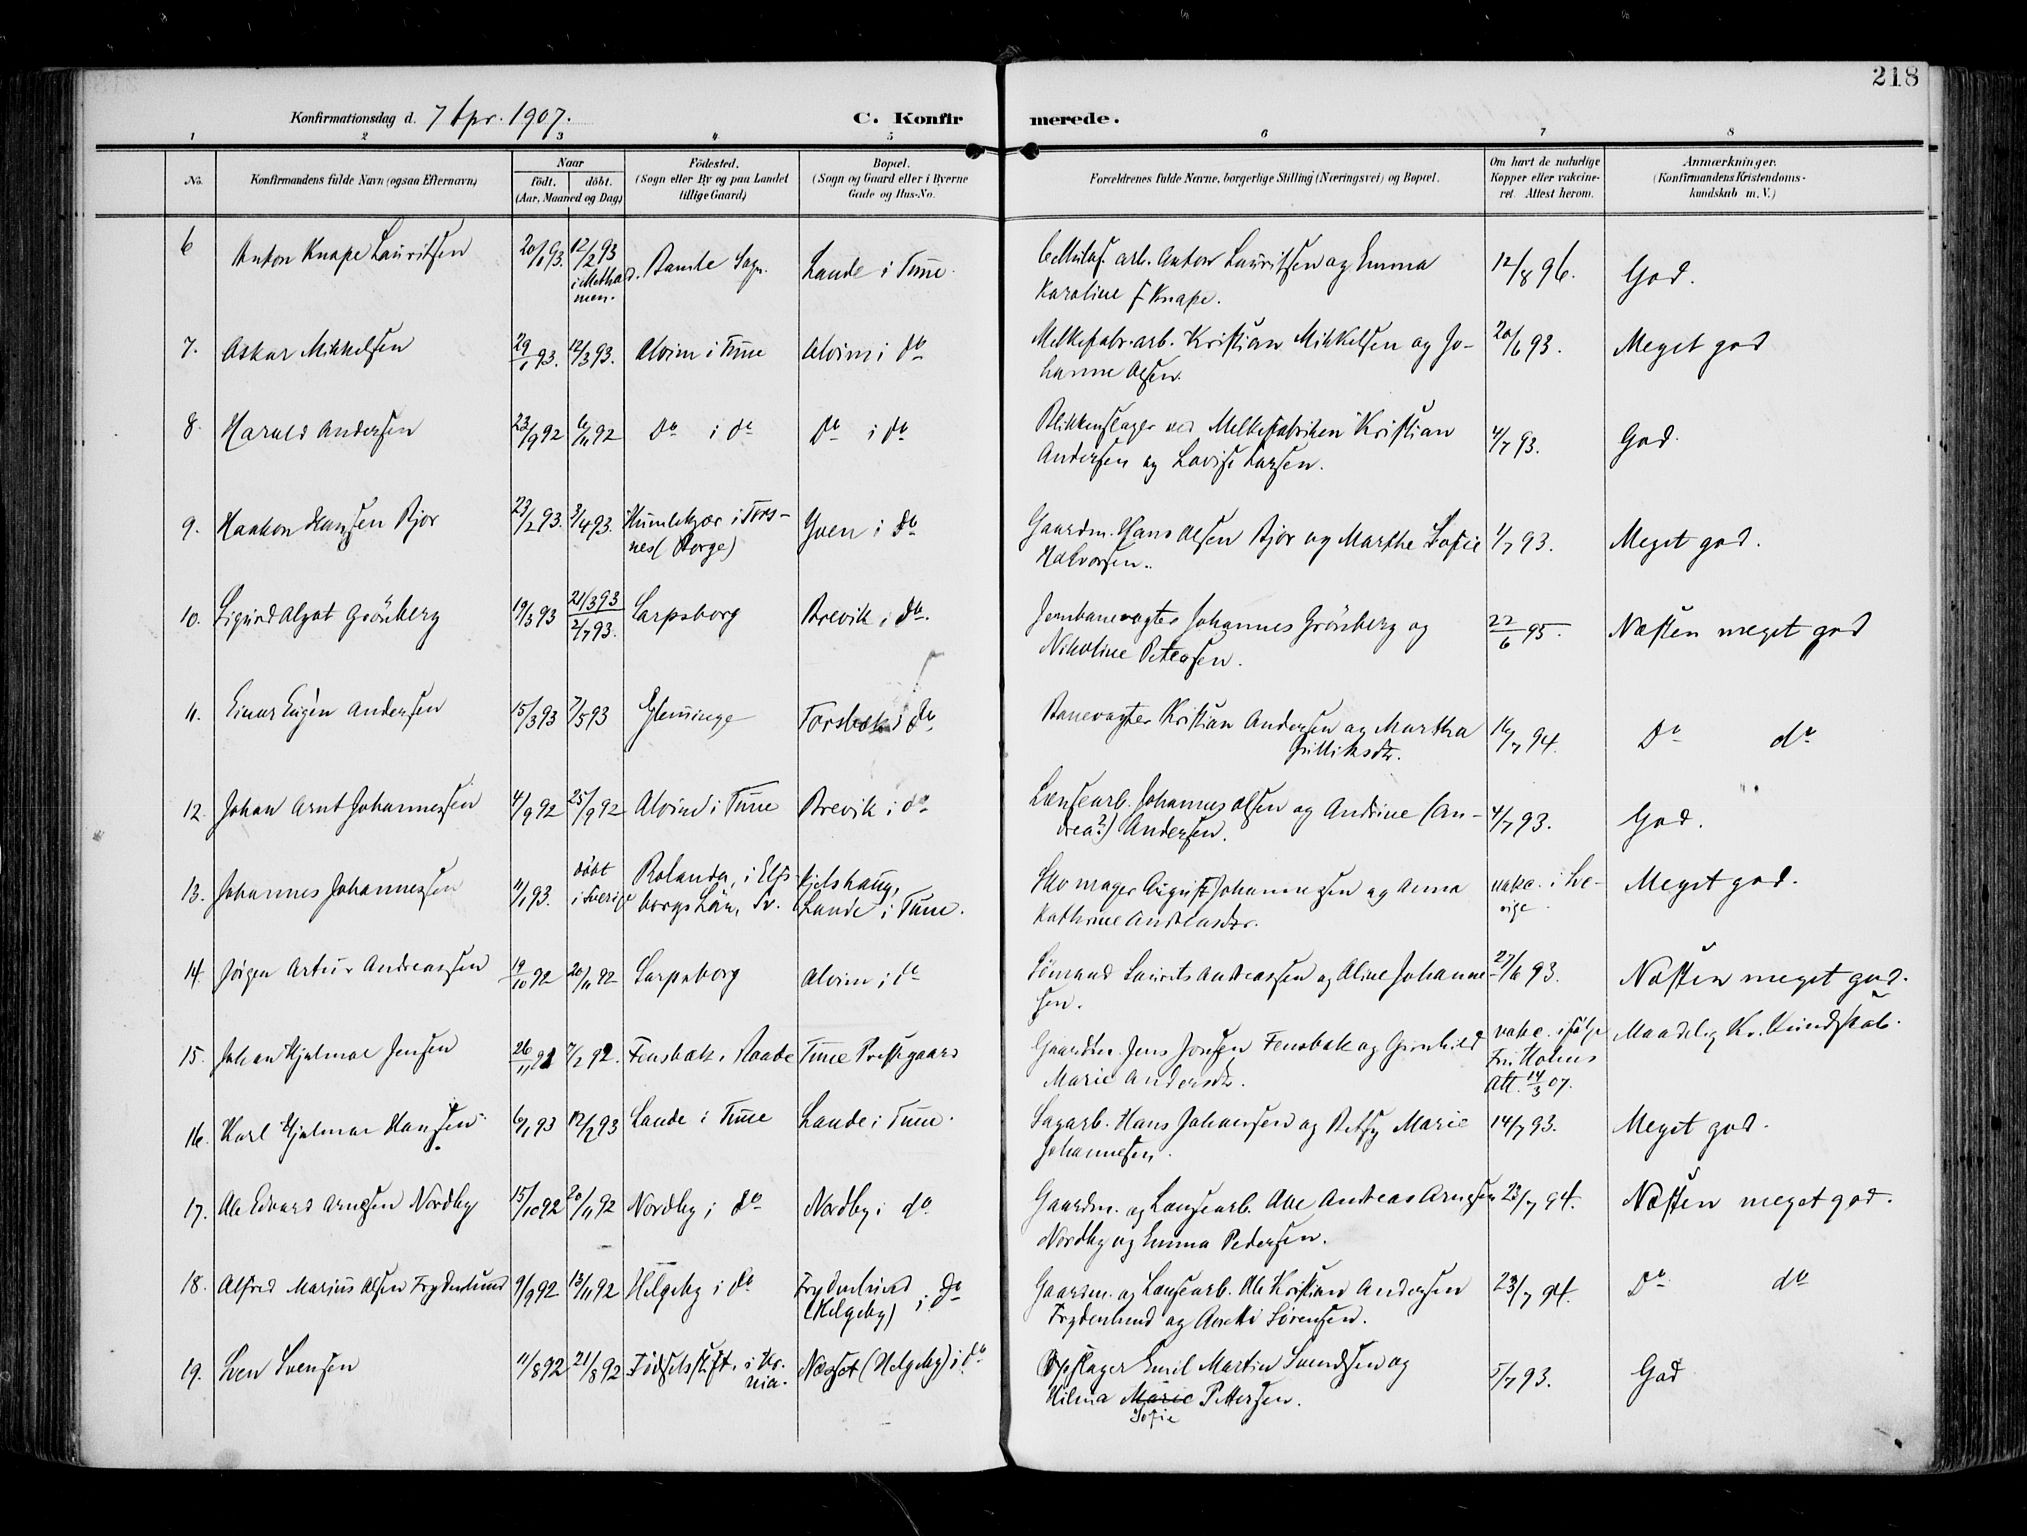 218
Konfirmationsdag d. 7 Apr. 1907.
C. Konfirmerede.
1 2 3 4 5 6 7 8
No.
Konfirmandens fulde Navn (ogsaa Efternavn)
Naar
født. døbt.
(Aar, Maaned og Dag)
Fødested.
(Sogn eller By og paa Landet
tillige Gaard)
Bopæl.
(Sogn og Gaard eller i Byerne
Gade og Hus-No.
Forældrenes fulde Navne, borgerlige Stilling (Næringsvei) og Bopæl.
Om havt de naturlige
Kopper eller vakcine-
ret. Attest herom.
Anmærkninger.
(Konfirmandens Kristendoms-
kundskab m. V.)
6 Anton Knape Lauritsen 20/1 93. 12/2 93 Bamle Sogn. Lande i Tune.
i Metho
men.
arb. Anton Lauritsen og Emma
Karoline f Knape.
12/8 96. God.
7. Oskar Mikkelsen 29/1 93. 12/3 93. Alvim i Tune Alvim i do
Melkefabr.arb. Kristian Mikkelsen og Jo-
hanne Olsen.
20/6 93. Meget god
8. Harald Andersen 23/9 92 6/11 92 Do i do Do i do
Blikkenslager ved Melkefabriken Kristian
Andersen og Lovise Larsen.
4/7 93. God.
9. Haakon Hansen Bjor 23/2 93. 3/4 93. Humlekjær i Tors-
nes (Borge) Yven i do
Gaardm. Hans Olsen Bjor og Marthe Sofie
Halvorsen.
1/7 93. Meget god.
10. Sigurd Algot Grönberg 19/3 93 21/3 93
2/7 93. Sarpsborg Brevik i do.
Jernbanevogter Johannes Grönberg og
Nikoline Petersen.
22/6 95. Næsten meget god
11. Einar Eugen Andersen 15/3 93 7/5 93 Glemminge Torsbæk i do
Banevogter Kristian Andersen og Martha
Gulliksdr.
16/7 94. Do do
12. Johan Arnt Johannessen 4/9 92 25/9 92 Alvim i Tune Brevik i do
Lænsearb. Johannes Olsen og Andrine (An-
drea?) Andersen.
4/7 93. God.
13. Johannes Johannessen 11/1 93. döbt
i Sverige Bolanda, i Elfs-
borgs Län, Sv. Fjelshaug,
Lande i Tune.
Skomager August Johannessen og Anna
Kathrine Andreasdr.
vakc. i Sve-
rige Meget god.
14. Jörgen Artur Andreassen 19/10 92 20/11 92 Sarpsborg Alvim i do
Sömand Laurits Andreassen og Aline Johanne
sen.
27/6 93. Næsten meget god.
15. Johan Hjalmar Jensen 26/11 91 7/2 92. Fensbæk i Raade Tune Prestegaard
Gaardbr. Jens Jonsen Fensbæk og Gunhild
Marie Andersdr.
vakc. ifölge
Fru Holms
Att. 14/3 07.
Maadelig Kr. Kundskab.
16. Karl Hjalmar Hansen 6/1 93 12/2 93 Lande i Tune Lande i Tune.
Sagarb. Hans Johansen og Betsy Marie
Johannesen.
14/7 93. Meget god.
17. Ole Edvard Arnesen Nordby 15/10 92 20/11 92 Nordby i do Nordby i do
Gaardm. og Lænsearb. Ole Andreas Arnesen
Nordby og Emma Pedersen.
23/7 94. Næsten meget god.
18. Alfred Marius Olsen Frydenlund 9/9 92 13/11 92 Helgeby i do Frydenlund
(Helgeby) i do
Gaardm. og Lænsearb. Ole Kristian Andersen
Frydenlund og Anette Sörensen.
23/7 94. Do do
19. Sven Svensen 11/8 92 21/8 92 Födselsstift. i Kr.
nia. Næsset (Helgeby) i do
Opslager Emil Martin Svendsen og
Hilma Marie Pettersen.
Sofie
5/7 93. God